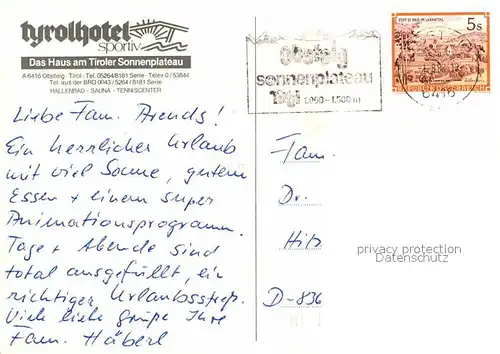 tyrolhotel
sportiv
Das Haus am Tiroler Sonnenplateau
A-6416 Obsteig · Tirol · Tel. 05264/8181 Serie · Telex 0/53844
Tel. aus der BRD 0043/5264/8181 Serie
HALLENBAD - SAUNA - TENNISCENTER
obsteig
sonnenplateau
Tirol 1.000 - 1.500 m
STIFT ST. PAUL IM LAVANTTAL
5 S
REPUBLIK ÖSTERREICH
6416
Liebe Fam. Arends!
Ein herrlicher Urlaub
mit viel Sonne, gutem
Essen + einem super
Animationsprogramm.
Tage + Abende sind
total ausgefüllt, ein
richtiger Urlaubsstreß.
Viele liebe Grüße Ihre
Fam. Häberl
Fam.
Dr.
Hil
D-836
privacy protection
Datenschutz